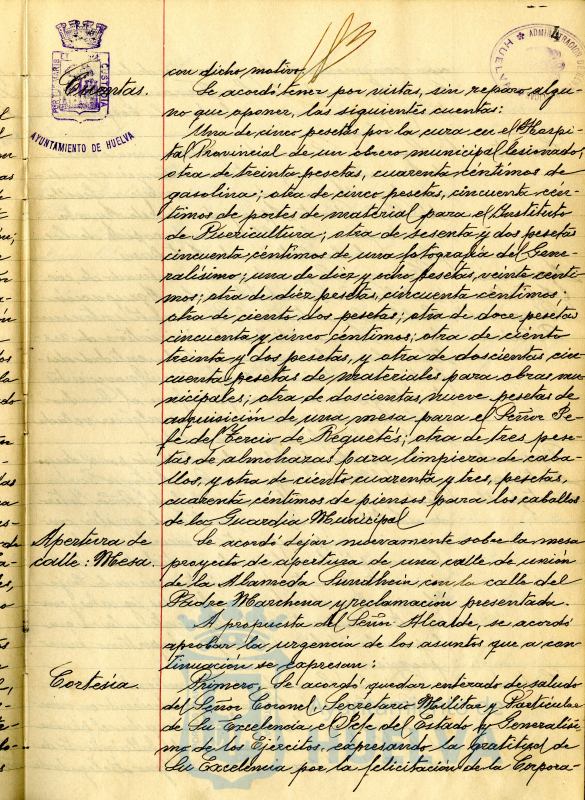 183
4
ADMINISTRACION DE
HUELVA
AYUNTAMIENTO DE HUELVA
con dicho motivo.
Cuentas.
Se acordó tener por vistas, sin reparo algu-
no que oponer, las siguientes cuentas:
Una de cinco pesetas por la cura en el Hospi-
tal Provincial de un obrero municipal lesionado;
otra de treinta pesetas, cuarenta céntimos de
gasolina; otra de cinco pesetas, cincuenta cén-
timos de portes de material para el Instituto
de Puericultura; otra de sesenta y dos pesetas
cincuenta céntimos de una fotografía del Gene-
ralísimo; una de diez y ocho pesetas, veinte cénti-
mos; otra de diez pesetas, cincuenta céntimos;
otra de ciento dos pesetas; otra de doce pesetas
cincuenta y cinco céntimos; otra de ciento
treinta y dos pesetas, y otra de doscientas cin-
cuenta pesetas de materiales para obras mu-
nicipales; otra de doscientas nueve pesetas de
adquisición de una mesa para el Señor Je-
fe del Tercio de Requetés; otra de tres pese-
tas de almohazas para limpieza de caba-
llos, y otra de ciento cuarenta y tres, pesetas,
cuarenta céntimos de piensos para los caballos
de la Guardia Municipal
Apertura de
calle: Mesa.
Se acordó dejar nuevamente sobre la mesa
proyecto de apertura de una calle de unión
de la Alameda Sundheim con la calle del
Padre Marchena y reclamación presentada.
A propuesta del Señor Alcalde, se acordó
aprobar la urgencia de los asuntos que a con-
tinuación se expresan:
Cortesía.
Primero. Se acordó quedar enterado de saludo
del Señor Coronel, Secretario Militar y Particular
de Su Excelencia el Jefe del Estado y Generalísi-
mo de los Ejércitos, expresando la gratitud de
Su Excelencia por la felicitación de la Corpora-
HUELVA